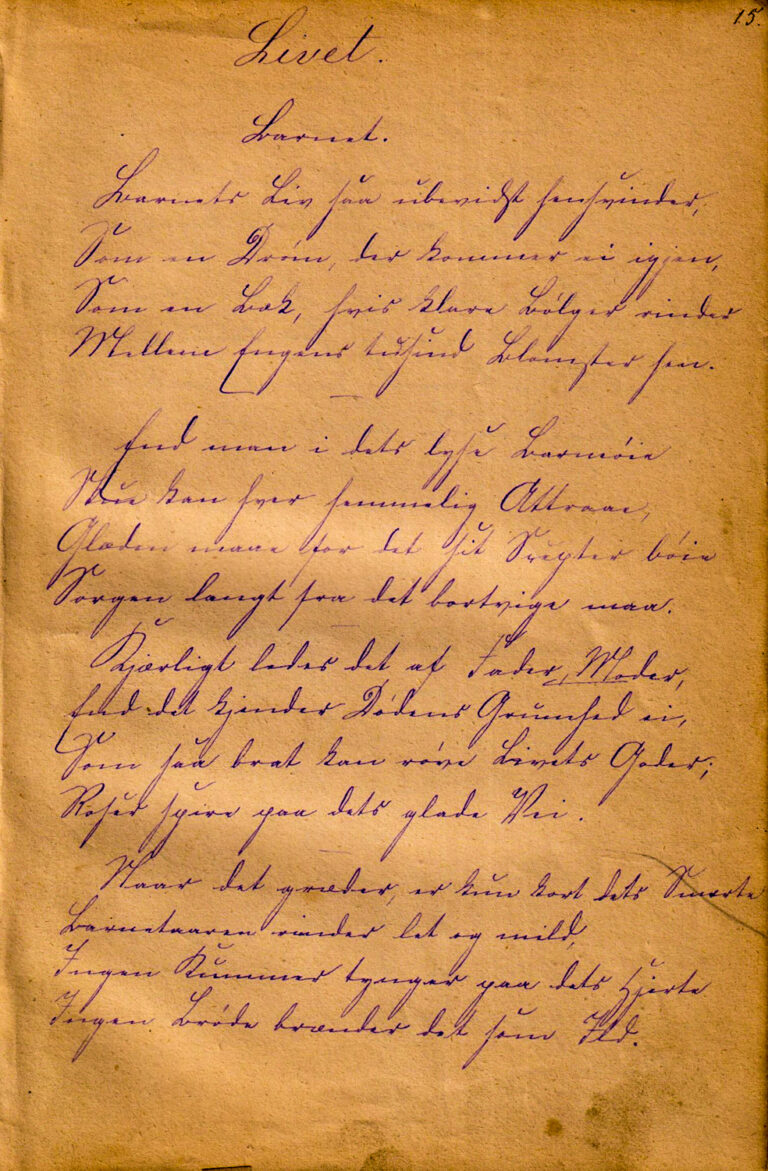 15.
Livet.
Barnet.
Barnets Liv saa ubevidst hensvinder,
Som en Drøm, der kommer ei igjen,
Som en Bæk, hvis klare Bølger rinder
Mellem Engens tusind Blomster hen.
End man i dets lyse Barneøie
Skue kan hver hemmelig Attraae,
Glæden maae for det sit Scepter bøie
Sorgen langt fra det bortvige maa.
Kjærligt ledes det af Fader, Moder,
End det kjender Dødens Grumhed ei,
Som saa brat kan røve Livets Goder;
Roser spire paa dets glade Vei.
Naar det græder, er kun kort dets Smerte
Barnetaaren rinder let og mild,
Ingen Kummer tynger paa dets Hjerte
Ingen Brøde brænder det som Ild.